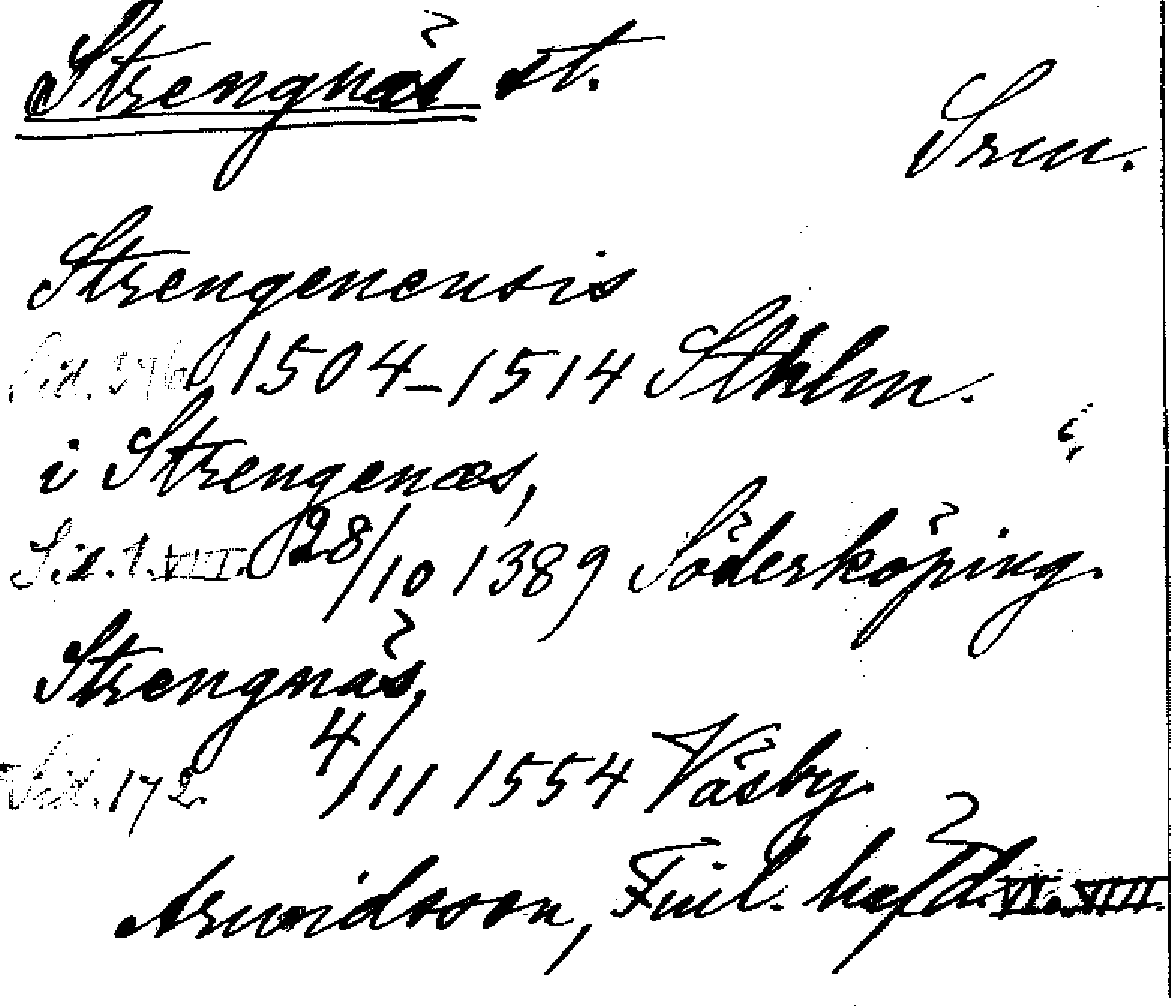 Strengnäs st.
Srm.
Strengenensis
Sid. 346, 1504–1514 Sthlm.
i Strengenæs,
Sid. 1. VII. 28/10 1389 Söderköping.
Strengnäs,
Sid. 172. 4/11 1554 Väsby.
Arwidsson, Finl. häfd. VI. VIII.